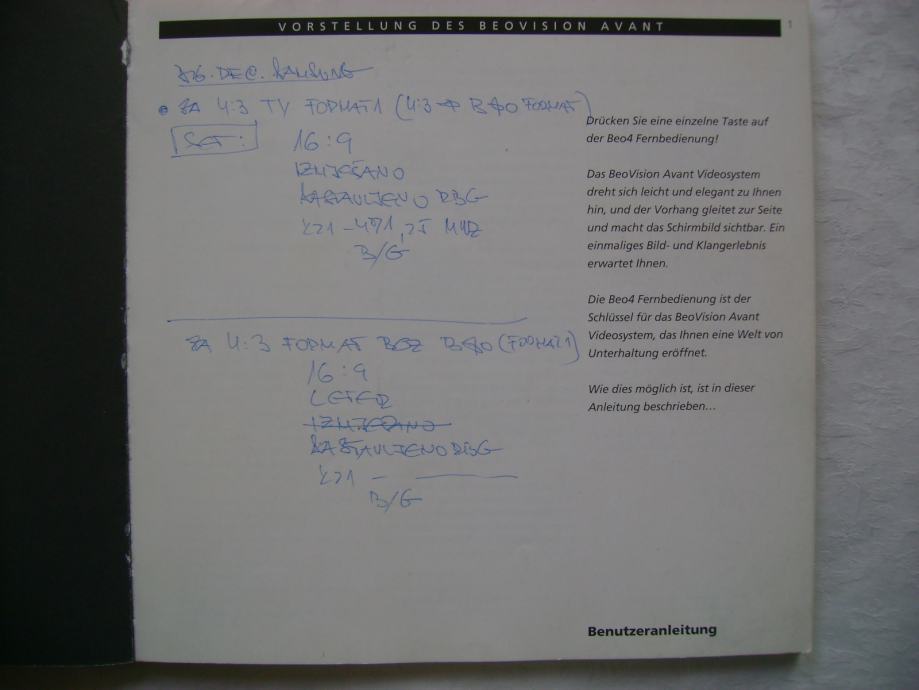 VORSTELLUNG DES BEOVISION AVANT
1
DEC. SAMSUNG
ZA 4:3 TV FORMAT1 (4:3 → B&O FORMAT)
SET:
16:9
IZMJEŠANO
RASTAVLJENO RBG
K21 – 471,25 MHZ
B/G
ZA 4:3 FORMAT BEZ B&O (FORMAT1)
16:9
LETER
IZMJEŠANO
RASTAVLJENO RBG
K21 –
B/G
Drücken Sie eine einzelne Taste auf
der Beo4 Fernbedienung!
Das BeoVision Avant Videosystem
dreht sich leicht und elegant zu Ihnen
hin, und der Vorhang gleitet zur Seite
und macht das Schirmbild sichtbar. Ein
einmaliges Bild- und Klangerlebnis
erwartet Ihnen.
Die Beo4 Fernbedienung ist der
Schlüssel für das BeoVision Avant
Videosystem, das Ihnen eine Welt von
Unterhaltung eröffnet.
Wie dies möglich ist, ist in dieser
Anleitung beschrieben...
Benutzeranleitung